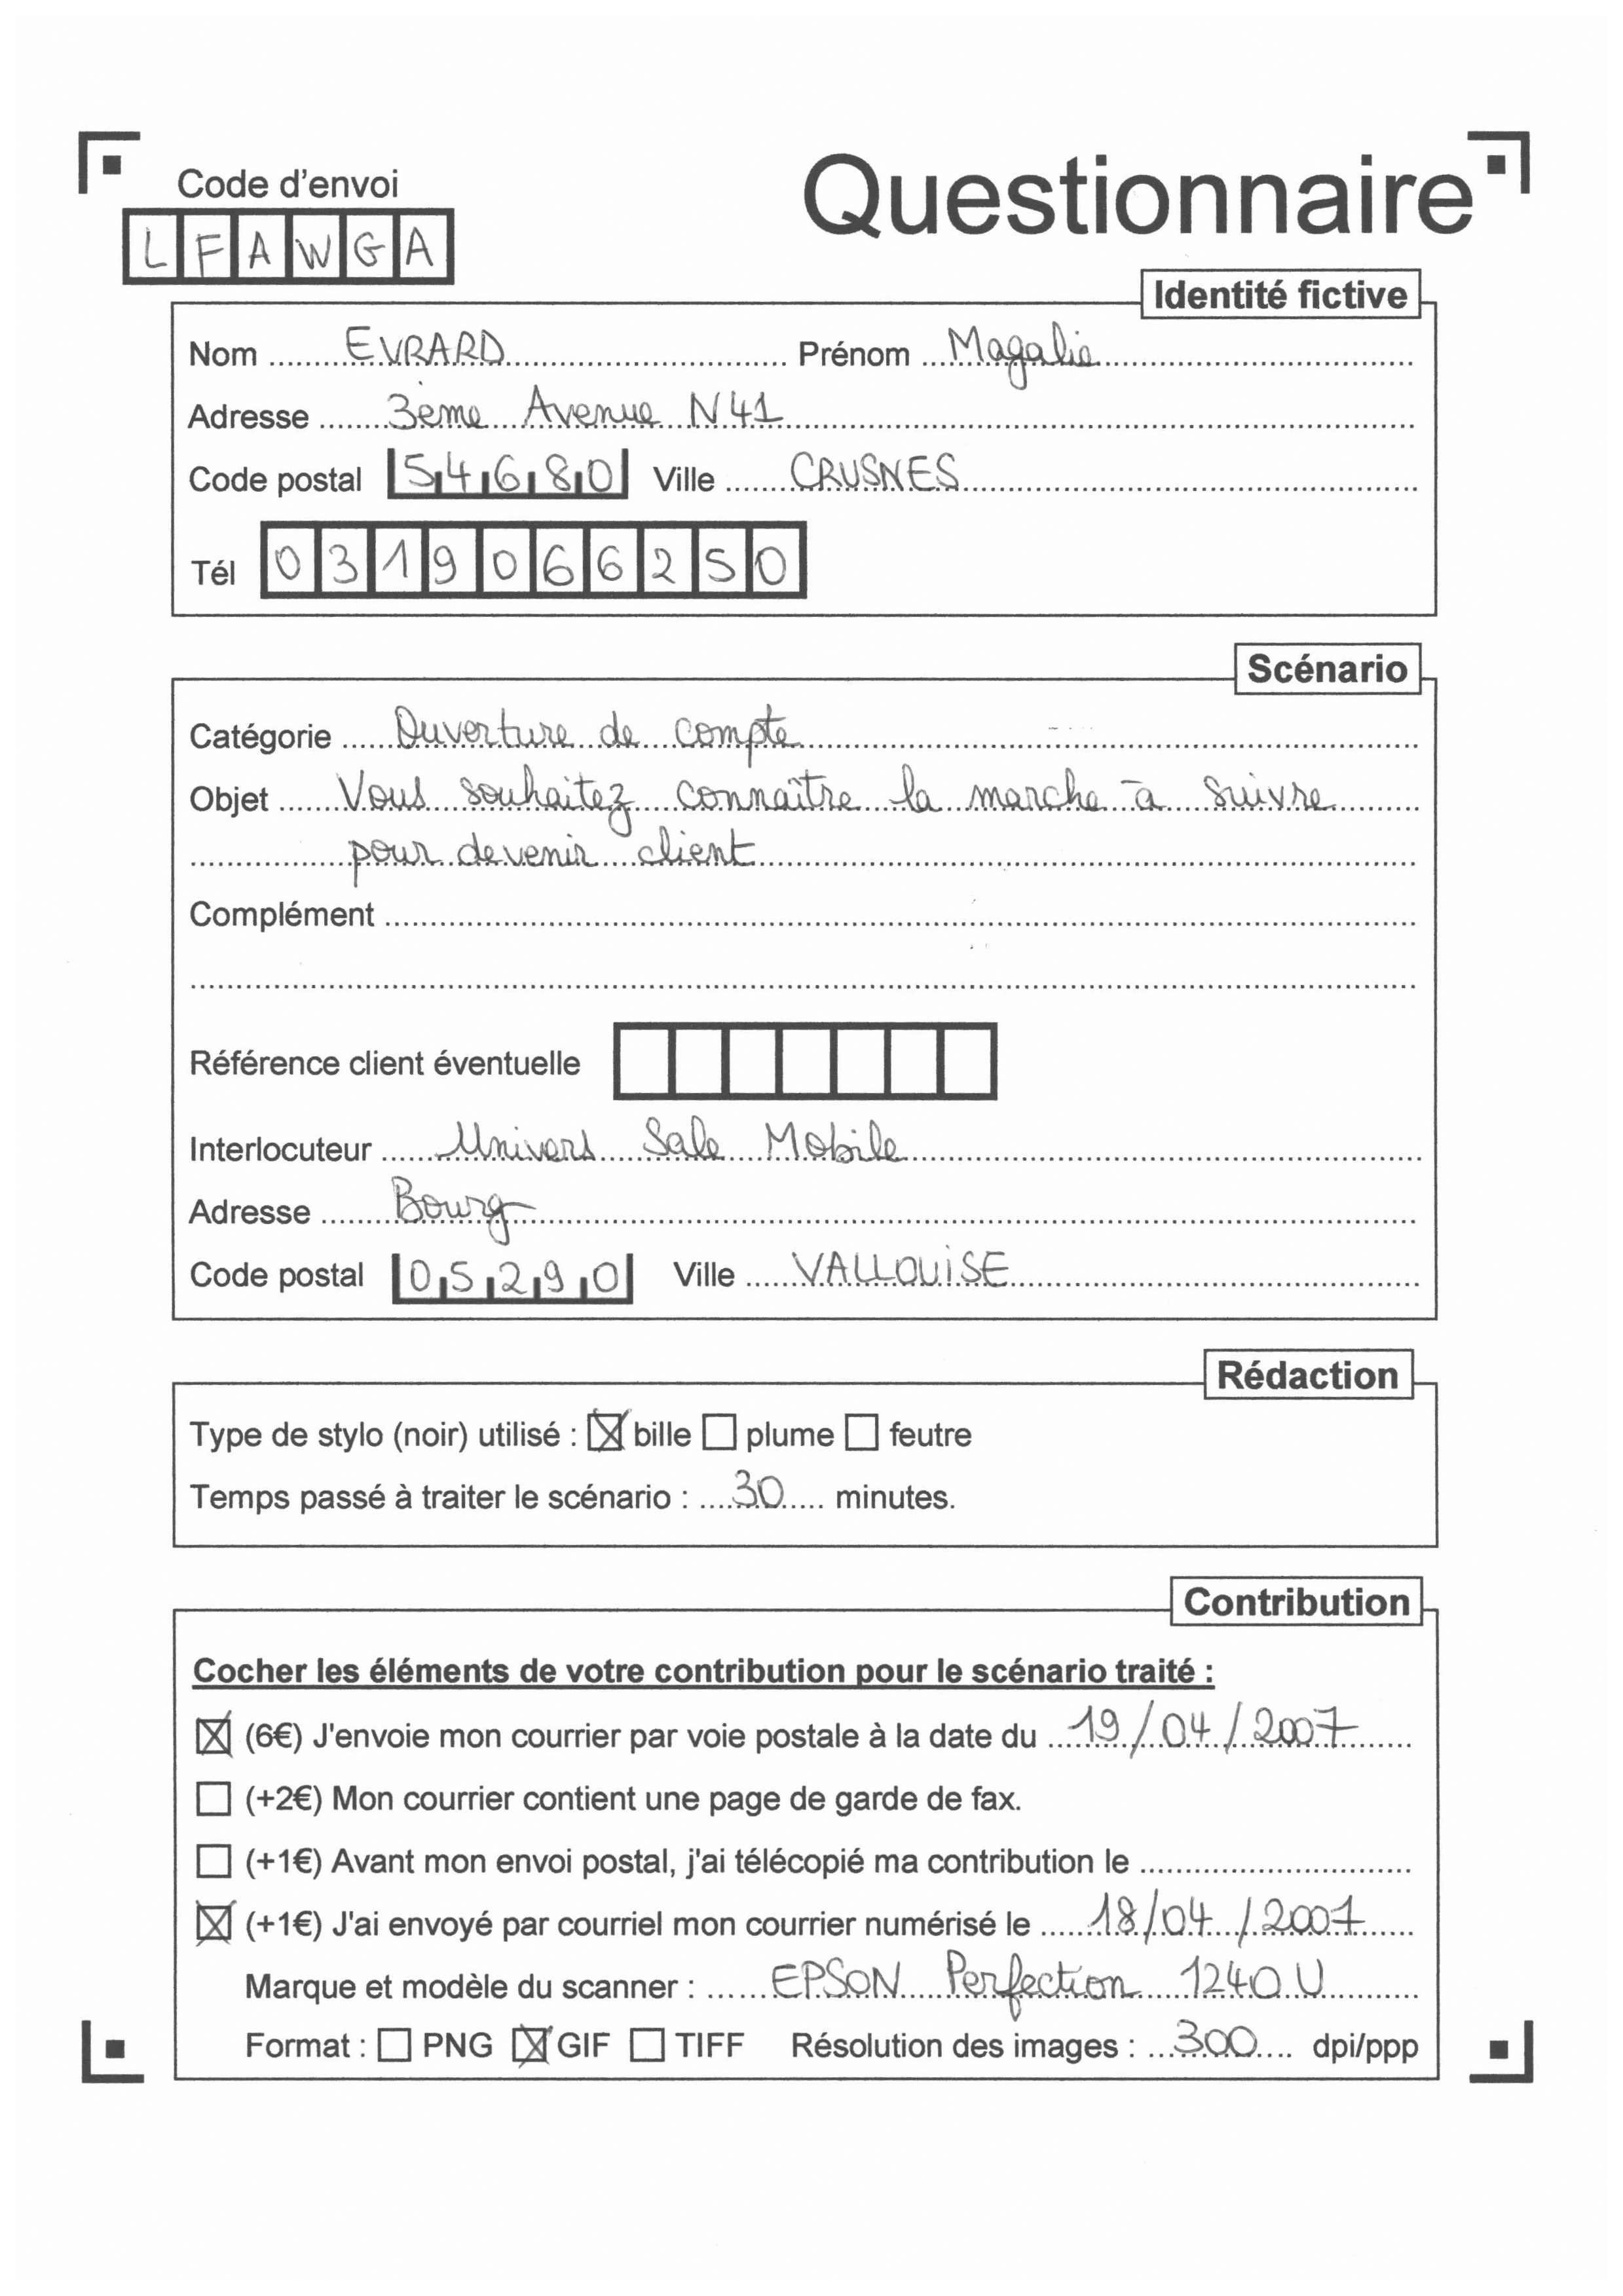 Questionnaire
Code d'envoi
LFAWGA
Identité fictive
Nom ....... EVRARD ....... Prénom ... Magalie .......
Adresse ....... 3ème Avenue N41 .......
Code postal 54680 Ville ....... CRUSNES .......
Tél 0319066250
Scénario
Catégorie ....... Ouverture de compte .......
Objet ....... Vous souhaitez connaître la marche à suivre .......
....... pour devenir client .......
Complément .......
Référence client éventuelle
Interlocuteur ....... Univers Sale Mobile .......
Adresse ....... Bourg .......
Code postal 05290 Ville ....... VALLOUISE .......
Rédaction
Type de stylo (noir) utilisé : ☒ bille ☐ plume ☐ feutre
Temps passé à traiter le scénario : .... 30 .... minutes.
Contribution
Cocher les éléments de votre contribution pour le scénario traité :
☒ (6€) J'envoie mon courrier par voie postale à la date du .... 19/04/2007 ....
☐ (+2€) Mon courrier contient une page de garde de fax.
☐ (+1€) Avant mon envoi postal, j'ai télécopié ma contribution le .......
☒ (+1€) J'ai envoyé par courriel mon courrier numérisé le .... 18/04/2007 ....
Marque et modèle du scanner : ...... EPSON Perfection 1240 U ......
Format : ☐ PNG ☒ GIF ☐ TIFF Résolution des images : ... 300 .... dpi/ppp